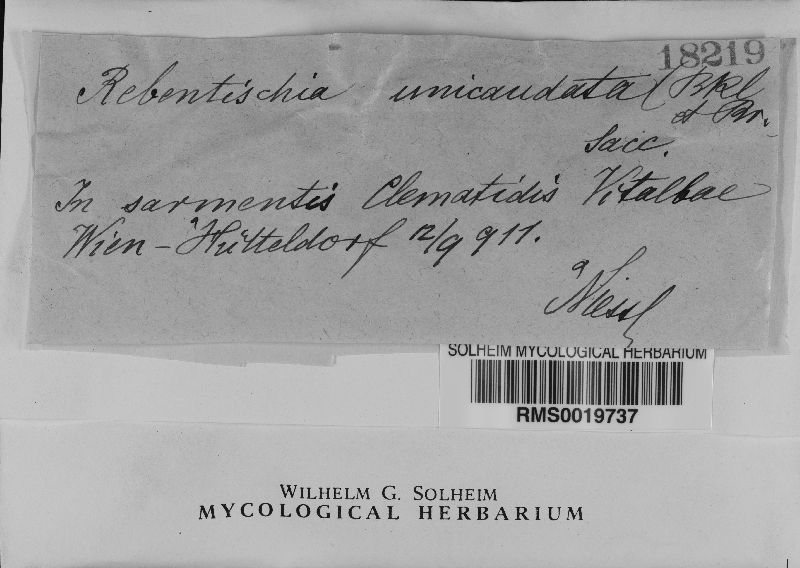 18219
Rebentischia unicaudata (Bkl
et Br.
Sacc.
In sarmentis Clematidis Vitalbae
Wien-Hütteldorf 12/9 911.
Niessl
SOLHEIM MYCOLOGICAL HERBARIUM
RMS0019737
WILHELM G. SOLHEIM
MYCOLOGICAL HERBARIUM